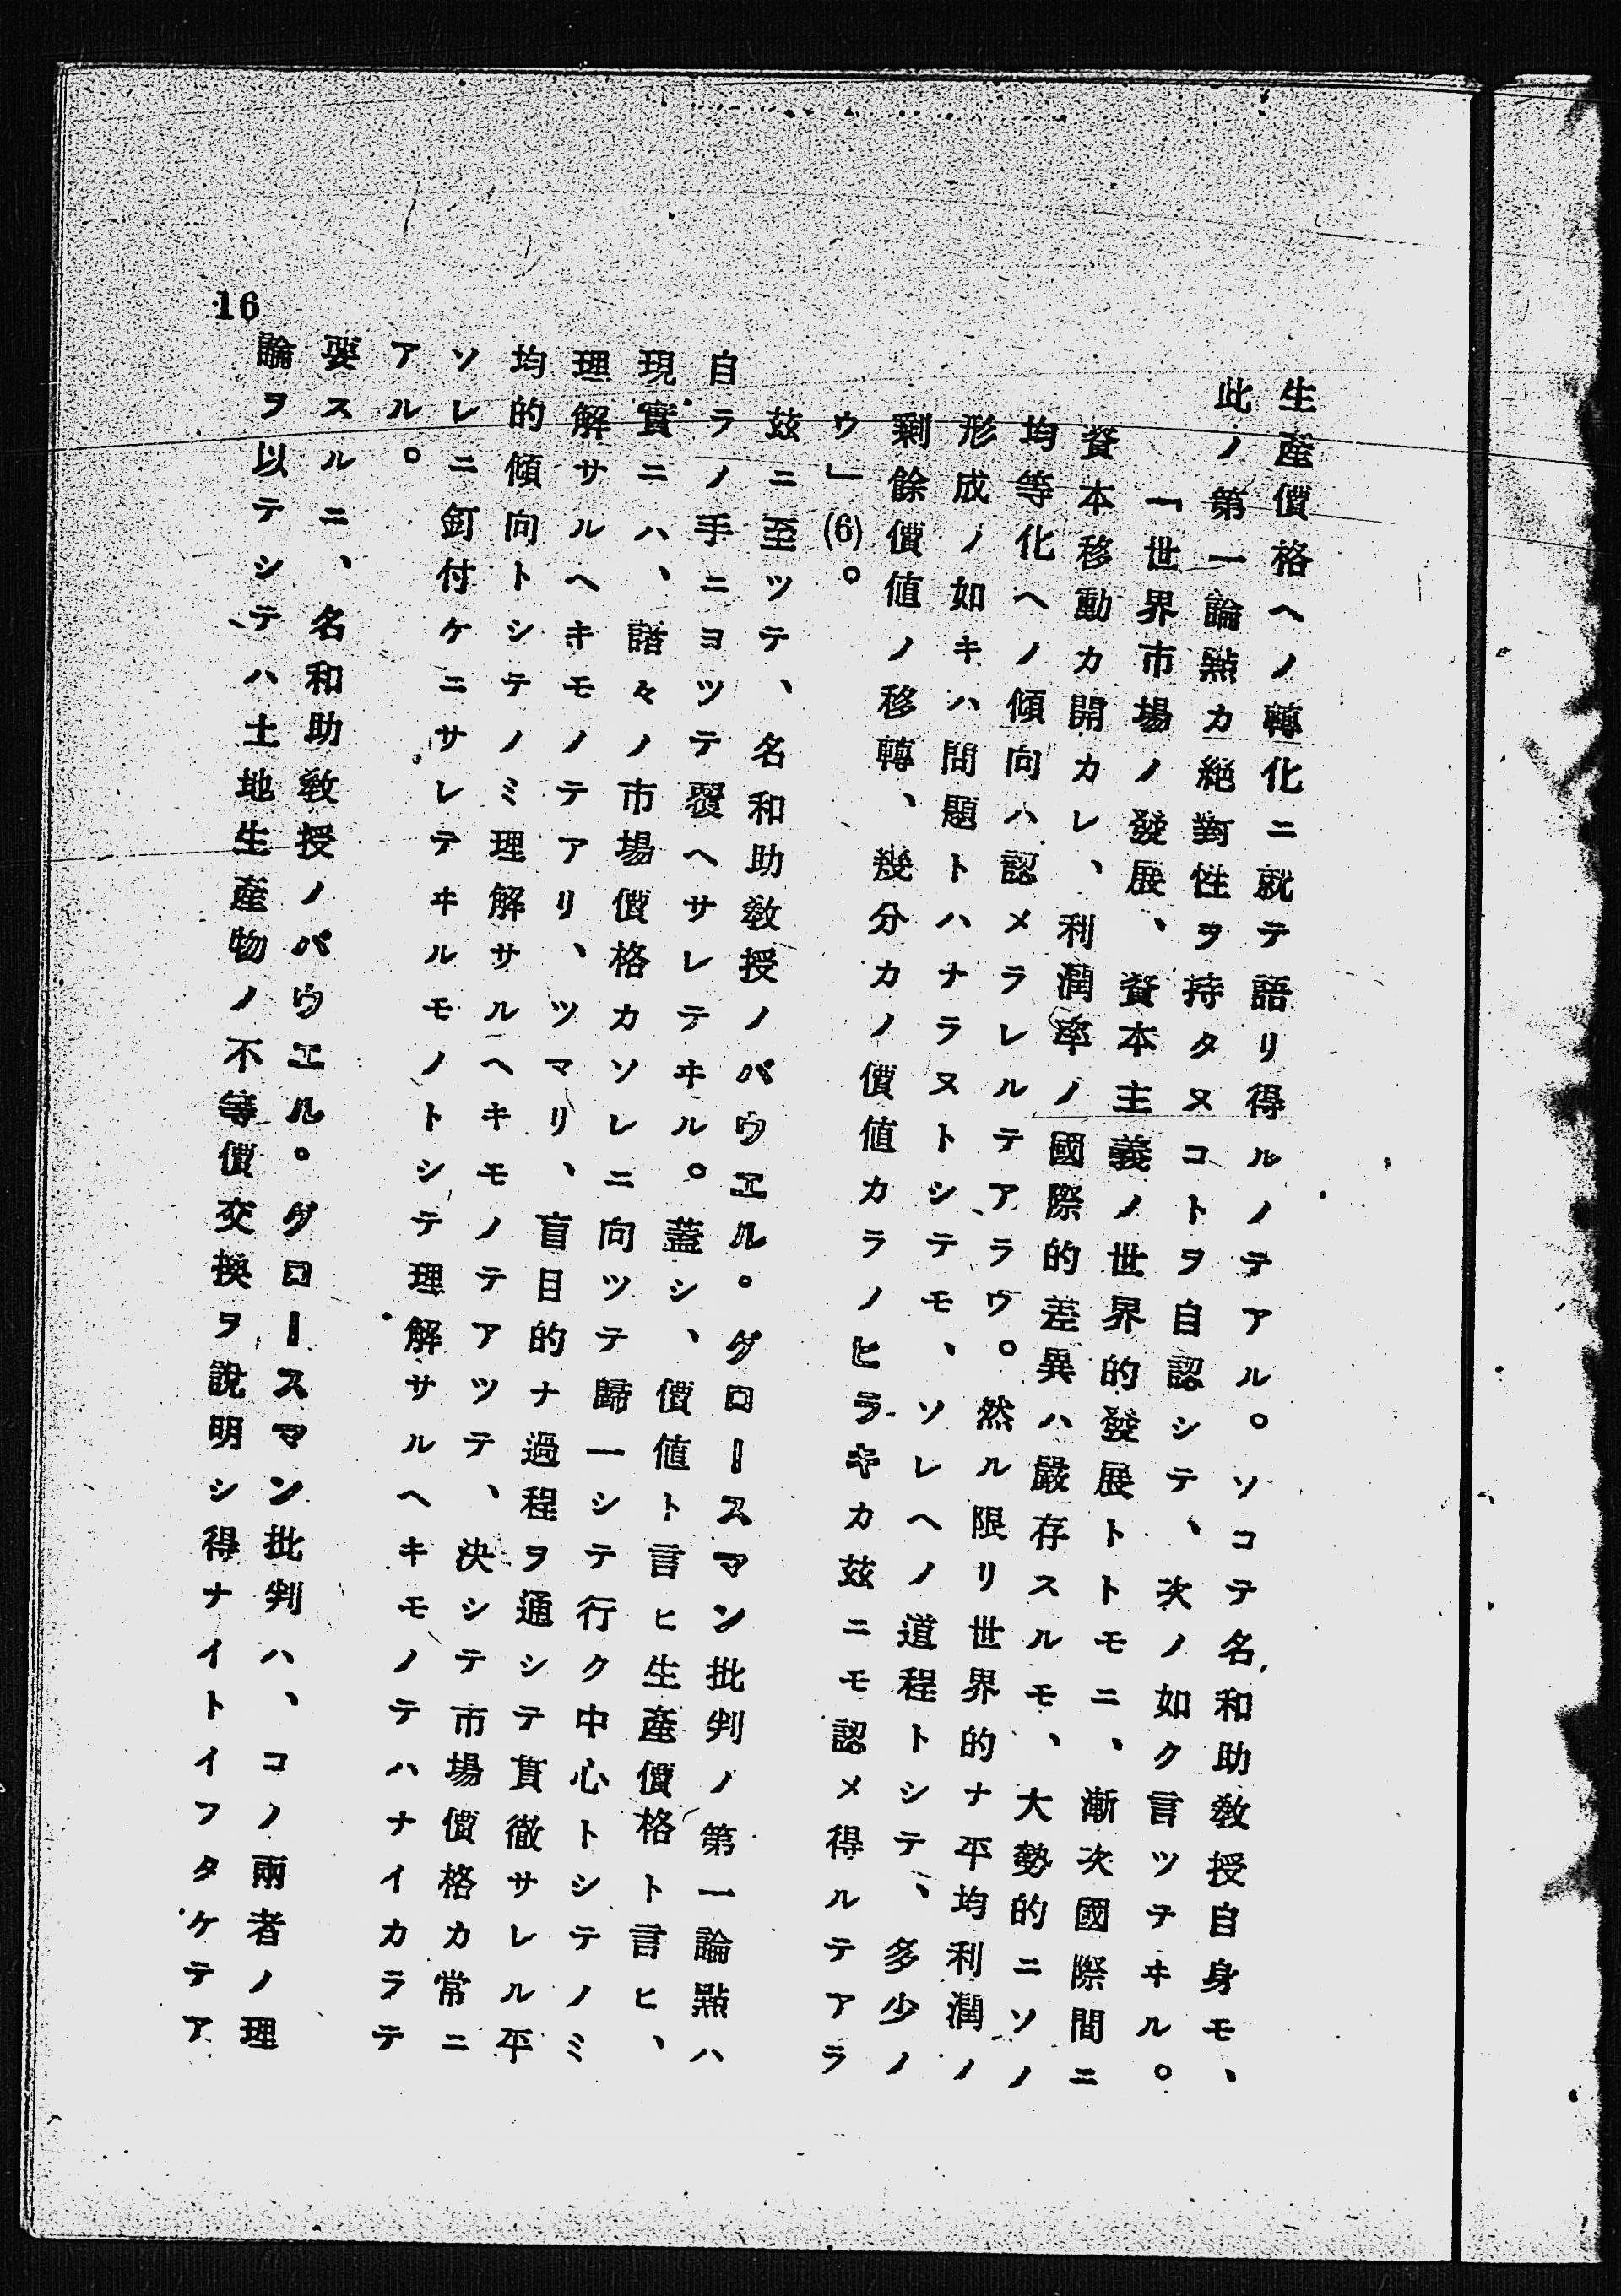 生產價格ヘノ轉化ニ就テ語リ得ルノテアル。ソコテ名和助敎授自身モ、
此ノ第一論點カ絕對性ヲ持タヌコトヲ自認シテ、次ノ如ク言ツテヰル。
「世界市場ノ發展、資本主義ノ世界的發展トトモニ、漸次國際間ニ
資本移動カ開カレ、利潤率ノ國際的差異ハ嚴存スルモ、大勢的ニソノ
均等化ヘノ傾向ハ認メラレルテアラウ。然ル限リ世界的ナ平均利潤ノ
形成ノ如キハ問題トハナラヌトシテモ、ソレヘノ道程トシテ、多少ノ
剩餘價値ノ移轉、幾分カノ價値カラノヒラキカ茲ニモ認メ得ルテアラ
ウ」(6)。
茲ニ至ツテ、名和助敎授ノバウヱル。グロースマン批判ノ第一論點ハ
自ラノ手ニヨツテ覆ヘサレテヰル。蓋シ、價値ト言ヒ生產價格ト言ヒ、
現實ニハ、諸々ノ市場價格カソレニ向ツテ歸一シテ行ク中心トシテノミ
理解サルヘキモノテアリ、ツマリ、盲目的ナ過程ヲ通シテ貫徹サレル平
均的傾向トシテノミ理解サルヘキモノテアツテ、決シテ市場價格カ常ニ
ソレニ釘付ケニサレテヰルモノトシテ理解サルヘキモノテハナイカラテ
アル。
要スルニ、名和助敎授ノバウヱル。グロースマン批判ハ、コノ兩者ノ理
論ヲ以テシテハ土地生產物ノ不等價交換ヲ說明シ得ナイトイフタケテア
16